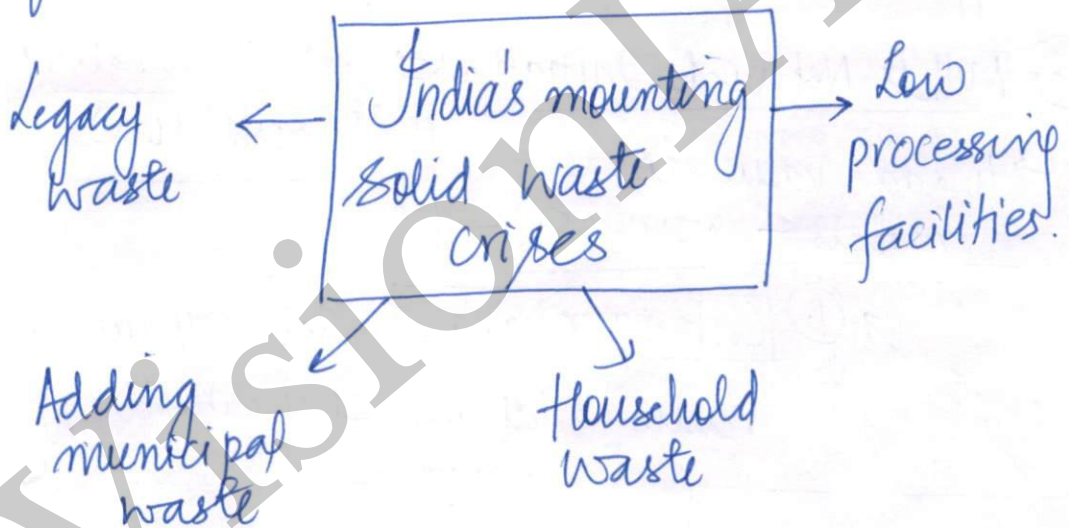 India's mounting
solid waste
crises
Legacy
waste
Low
processing
facilities.
Adding
municipal
waste
Household
waste
Vision